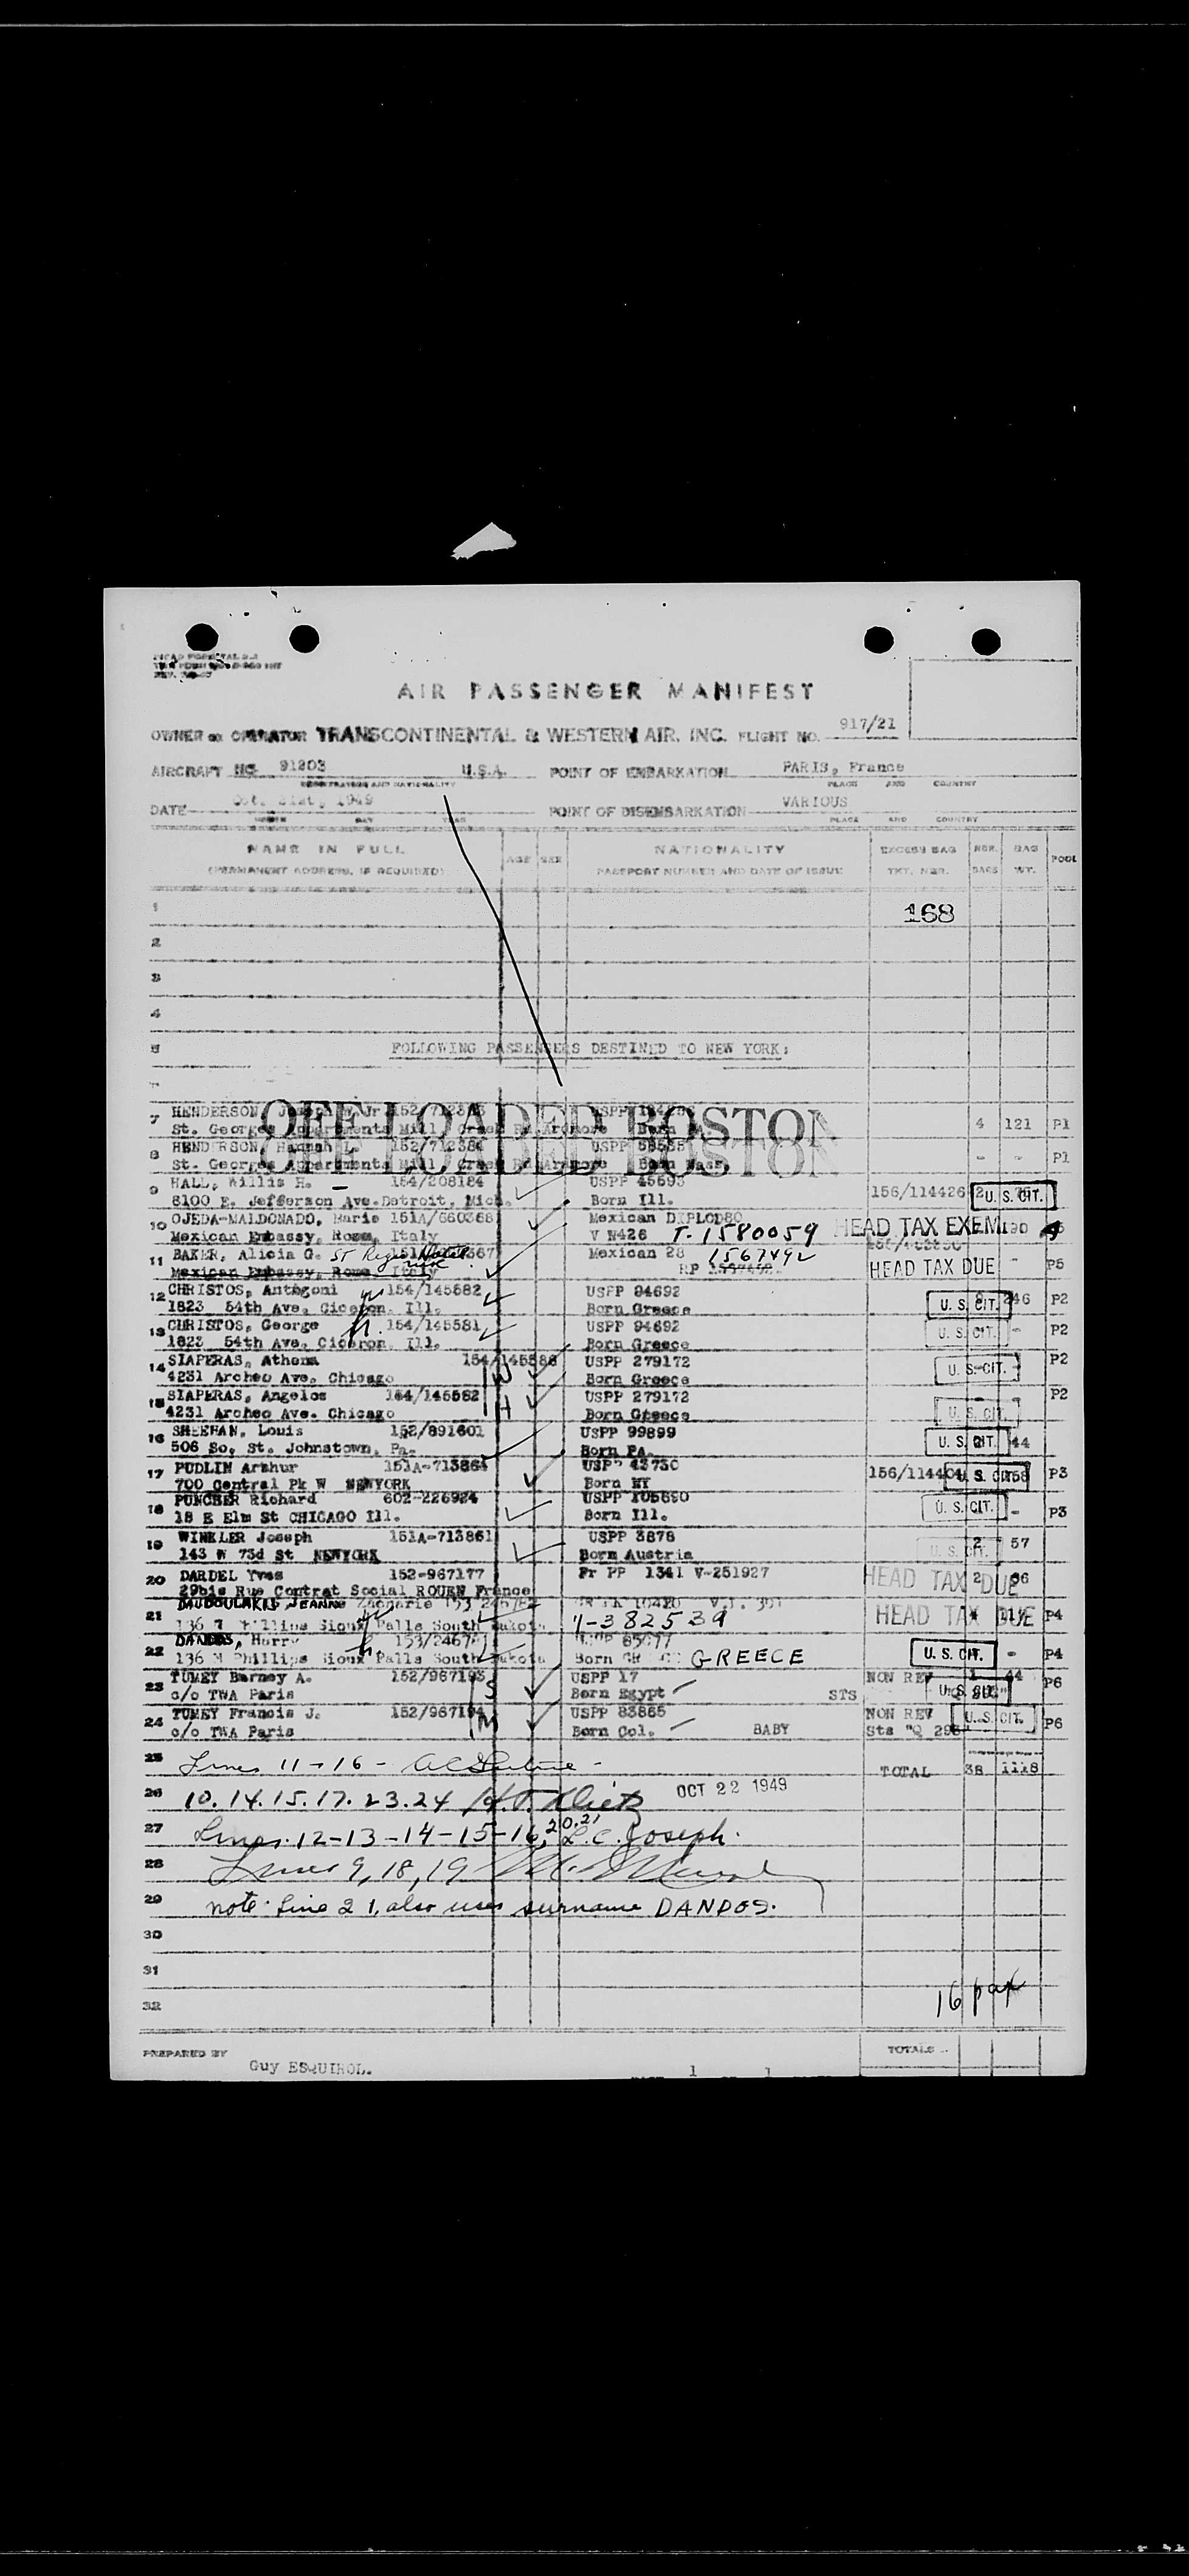 AIR PASSENGER MANIFEST
917/21
OWNER OR OPERATOR TRANSCONTINENTAL & WESTERN AIR, INC. FLIGHT NO.
AIRCRAFT NO. 91203 U.S.A. POINT OF EMBARKATION PARIS, France
REGISTRATION AND NATIONALITY PLACE AND COUNTRY
DATE Oct. 21st, 1949 POINT OF DISEMBARKATION VARIOUS
MONTH DAY YEAR PLACE AND COUNTRY
NAME IN FULL AGE SEX NATIONALITY EXCESS BAG NBR. BAG POOL
(PERMANENT ADDRESS, IF REQUIRED) PASSPORT NUMBER AND DATE OF ISSUE TKT. NBR. BAGS WT.
1 168
2
3
4
5 FOLLOWING PASSENGERS DESTINED TO NEW YORK:
7 HENDERSON Jr USPP
St. Georges Appartments Mill Creek Rd Ardmore Born 4 121 P1
OFF LOADED BOSTON
8 HENDERSON Hannah L. 152/712384 USPP
St. Georges Appartments Mill Creek Rd Ardmore Born Mass. - - P1
OFF LOADED BOSTON
9 HALL, Willis H. 154/208184 USPP 45593
8100 E. Jefferson Ave. Detroit, Mich. Born Ill. 156/114426 2 U. S. CIT.
10 OJEDA-MALDONADO, Marie 151A/660368 Mexican HEAD TAX EXEM
Mexican Embassy, Rome, Italy V N426 T-1580059
11 BAKER, Alicia G. St Regis Hotel Mexican 28 1567492
Mexican Embassy, Rome, Italy RP HEAD TAX DUE - P5
12 CHRISTOS, Anthgoni 154/145582 USPP 94692
1823 54th Ave. Ciceron. Ill. Born Greece U. S. CIT. 246 P2
13 CHRISTOS, George 154/145581 USPP 94692
1823 54th Ave. Ciceron. Ill. Born Greece U. S. CIT. - P2
14 SIAPERAS, Athena USPP 279172
4231 Archeo Ave. Chicago W Born Greece U. S. CIT. - P2
15 SIAPERAS, Angelos 154/145582 USPP 279172
4231 Archeo Ave. Chicago H Born Greece U. S. CIT. P2
16 SHEEHAN, Louis 152/891601 USPP 99899
506 So. St. Johnstown, Pa. Born PA. U. S. CIT. 44
17 PUDLIN Arthur 151A-713864 USPP 43730 156/114404 U. S. CIT. 58 P3
700 Central Pk W NEWYORK Born NY
18 PUNCHER Richard 602-226924 USPP 105690
18 E Elm St CHICAGO Ill. Born Ill. U. S. CIT. - P3
19 WINKLER Joseph 151A-713861 USPP 3878
143 W 73d St NEWYORK Born Austria U. S. CIT. 2 57
20 DARDEL Yves 152-967177 Fr PP 1341 V-251927 HEAD TAX DUE 2
29bis Rue Contrat Social ROUEN France
21 JEANNE
136 Phillips Sioux Falls South Dakota V-382539 HEAD TAX DUE P4
22 DANDOS, Harry
136 N Phillips Sioux Falls South Dakota Born GREECE U. S. CIT. - P4
23 TUMEY Barney A. 152/967193 USPP 17 NON REV 1 44 P6
c/o TWA Paris S Born Egypt STS U. S. CIT.
24 TUMEY Francis J. 152/967194 USPP 83865 NON REV U. S. CIT. P6
c/o TWA Paris M Born Col. BABY Sts "Q
25 Lines 11-16 - TOTAL 38 1118
26 10.14.15.17.23.24 OCT 22 1949
27 Lines 12-13-14-15-16, 20,21 L.C. Joseph.
28 Lines 9, 18, 19
29 note: Line 21, also uses surname DANDOS.
30
31
32 16 pax
PREPARED BY Guy ESQUIROL. 1 1 TOTALS